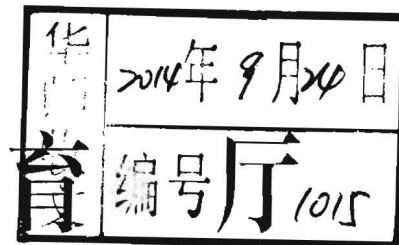 华
2014年9月24日
育
编号厅1015